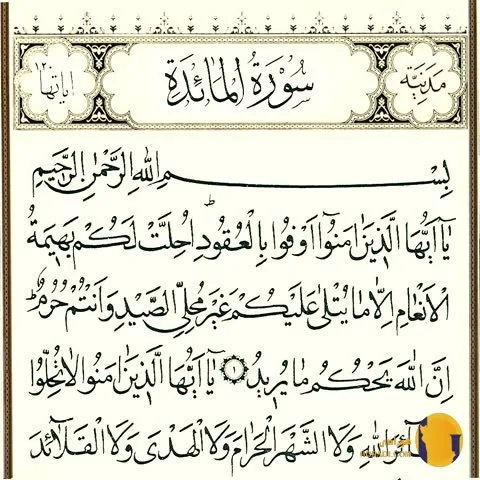 مدنية سورة المائدة اياتها ١٢٠
بسم الله الرحمن الرحيم
يَٓا اَيُّهَا الَّذٖينَ اٰمَنُٓوا اَوْفُوا بِالْعُقُودِ اُحِلَّتْ لَكُمْ بَهٖيمَةُ
الْاَنْعَامِ اِلَّا مَا يُتْلٰى عَلَيْكُمْ غَيْرَ مُحِلِّي الصَّيْدِ وَاَنْتُمْ حُرُمٌ
اِنَّ اللّٰهَ يَحْكُمُ مَا يُرٖيدُ ١ يَٓا اَيُّهَا الَّذٖينَ اٰمَنُوا لَا تُحِلُّوا
اللّٰهِ وَلَا الشَّهْرَ الْحَرَامَ وَلَا الْهَدْيَ وَلَا الْقَلَٓائِدَ